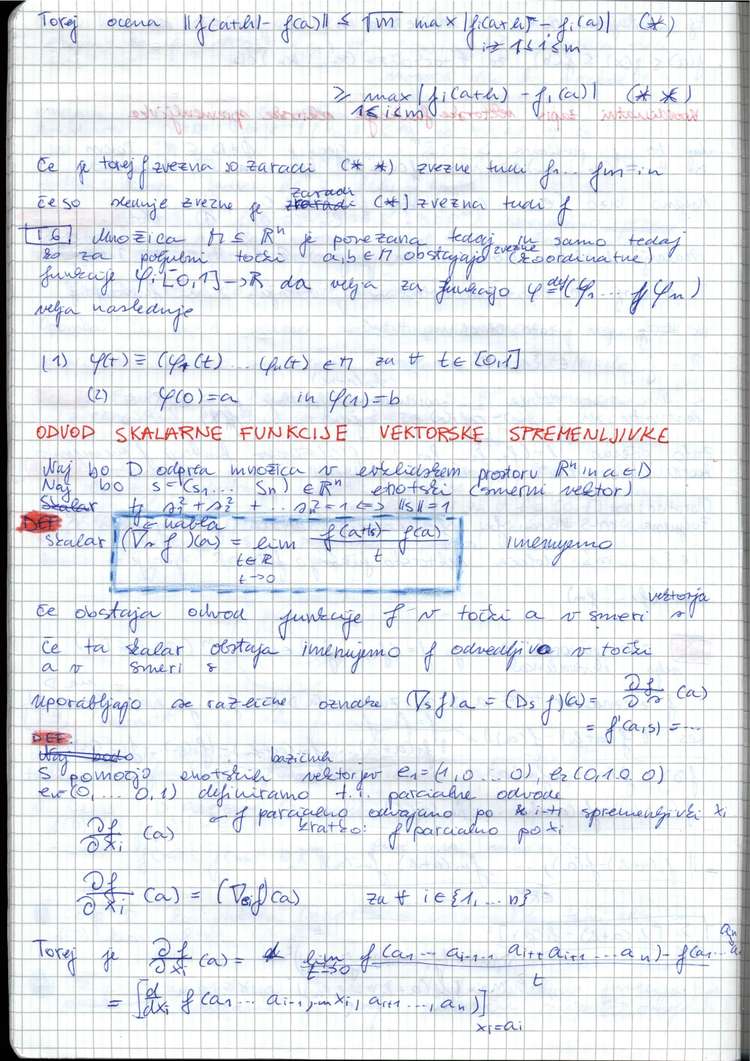 Torej ocena ||f(a+h) - f(a)|| ≤ √m max |fi(a+h) - fi(a)| (*)
1≤i≤m
≥ max |fi(a+h) - fi(a)| (* *)
1≤i≤m
Če je torej f zvezna so zaradi (* *) zvezne tudi f1... fm in
če so slednje zvezne je zaradi (*) zvezna tudi f
Množica M ⊆ Rⁿ je povezana tedaj in samo tedaj
ko za poljubni točki a,b ∈ M obstajajo zvezne (koordinatne)
funkcije φi [0,1] → R da velja za funkcijo φ def= (φ1 ... φn)
velja naslednje
(1) φ(t) ≡ (φ1(t) ... φn(t)) ∈ M za ∀ t ∈ [0,1]
(2) φ(0)=a in φ(1)=b
ODVOD SKALARNE FUNKCIJE VEKTORSKE SPREMENLJIVKE
Naj bo D odprta množica v evklidskem prostoru Rⁿ in a ∈ D
Naj bo s = (s1... sn) ∈ Rⁿ enotski (smerni vektor)
Skalar tj s1² + s2² + ... sn² = 1 <=> ||s|| = 1
DEF ← nabla
skalar (∇s f)(a) = lim f(a+ts) - f(a) / t imenujemo
t∈R
t→0
če obstaja odvod funkcije f v točki a v smeri vektorja s
Če ta skalar obstaja imenujemo f odvedljivo v točki
a v smeri s
Uporabljajo se različne oznake (∇s f)a = (Ds f)(a) = ∂f/∂s (a)
= f'(a,s) = ...
DEF.
Naj bodo bazičnih
S pomočjo enotskih vektorjev e1 = (1,0...0), e2 (0,1.0.0)
en (0,... 0,1) definiramo t.i. parcialne odvode
∂f/∂xi (a) f parcialno odvajano po i-ti spremenljivki xi
kratko: f parcialno po xi
∂f/∂xi (a) = (∇ei f)(a) za ∀ i ∈ {1,...n}
Torej je ∂f/∂xi (a) = lim t→0 f(a1 ... ai-1, ai+t ai+1 ... an) - f(a1... an) / t
= [d/dxi f(a1 ... ai-1, xi, ai+1 ..., an)] xi=ai